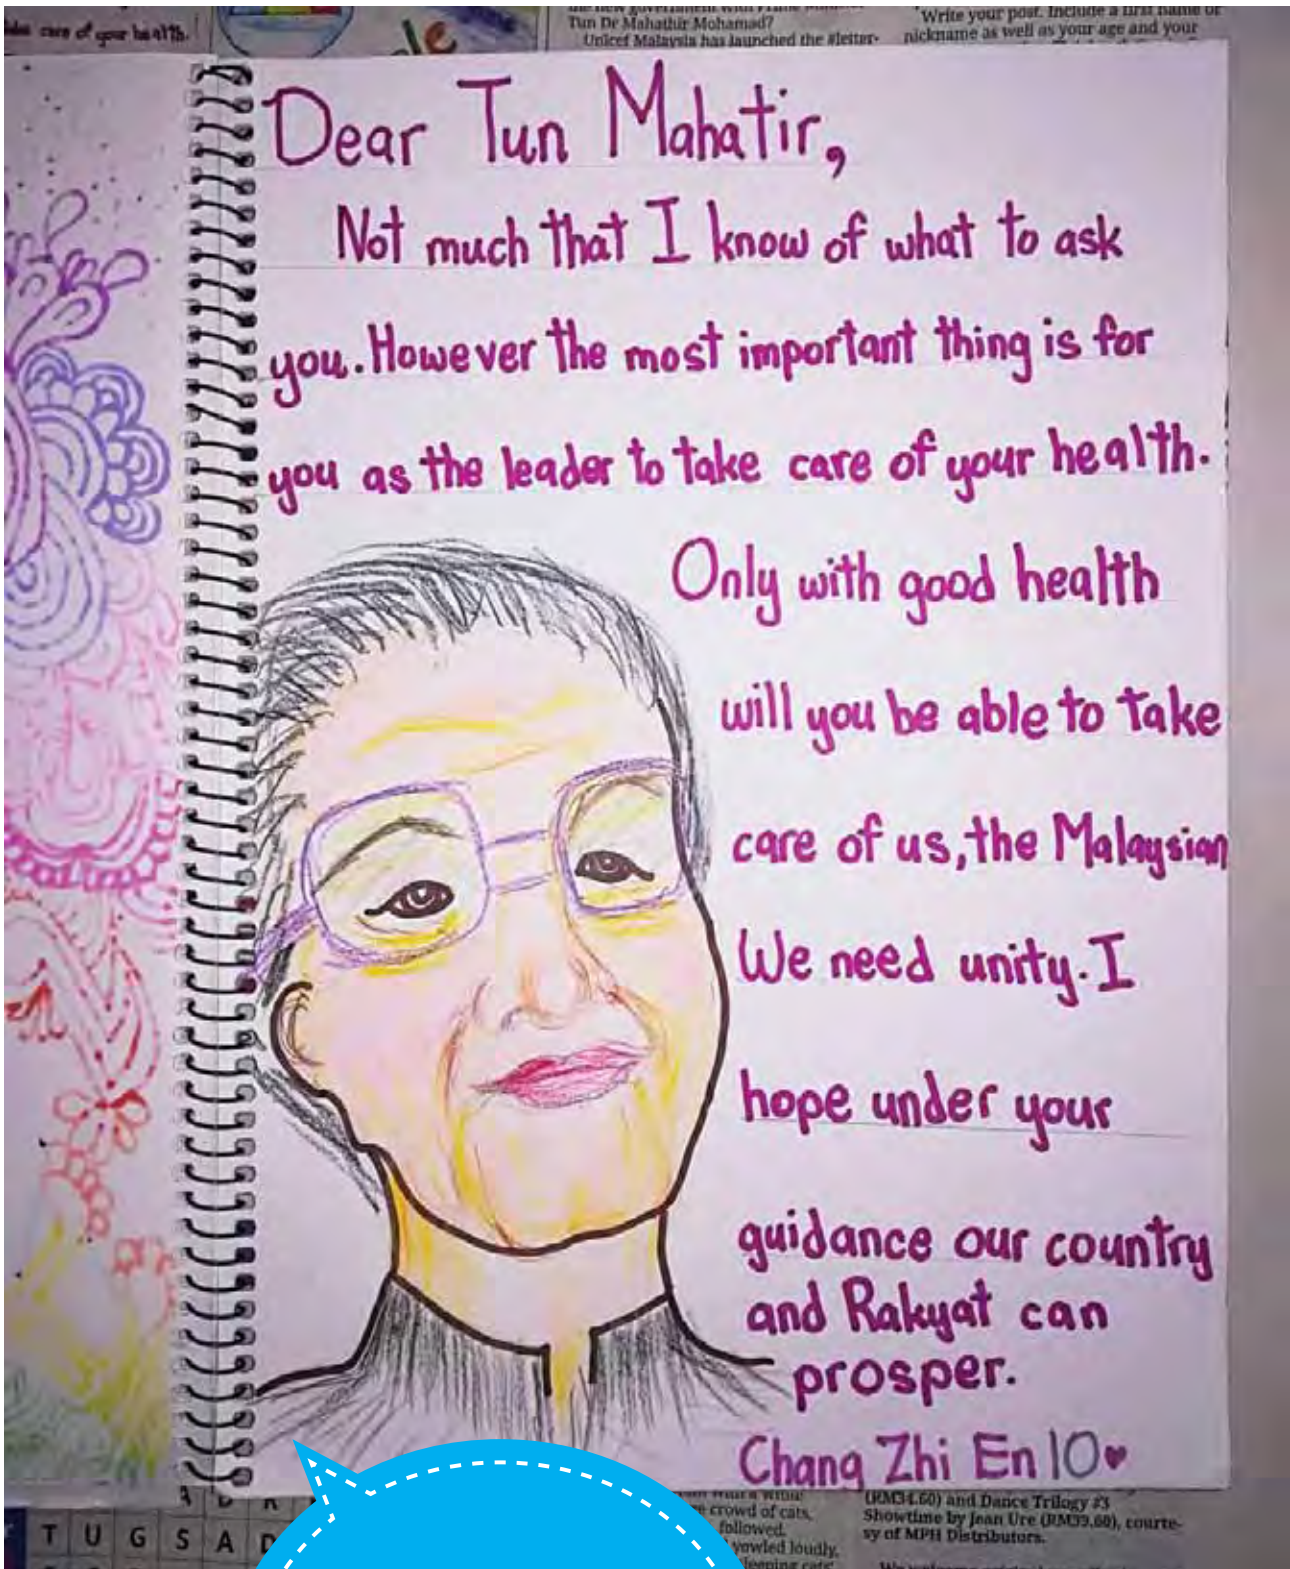 take care of your health.
the new government with Prime Minister
Tun Dr Mahathir Mohamad?
Unicef Malaysia has launched the #letter-
Write your post. Include a first name or
nickname as well as your age and your
Dear Tun Mahatir,
Not much that I know of what to ask
you. However the most important thing is for
you as the leader to take care of your health.
Only with good health
will you be able to take
care of us, the Malaysian
We need unity. I
hope under your
guidance our country
and Rakyat can
prosper.
Chang Zhi En 10♥
T U G S A D
crowd of cats,
followed.
yowled loudly,
(RM34.60) and Dance Trilogy #3
Showtime by Jean Ure (RM39.60), courte-
sy of MPH Distributors.